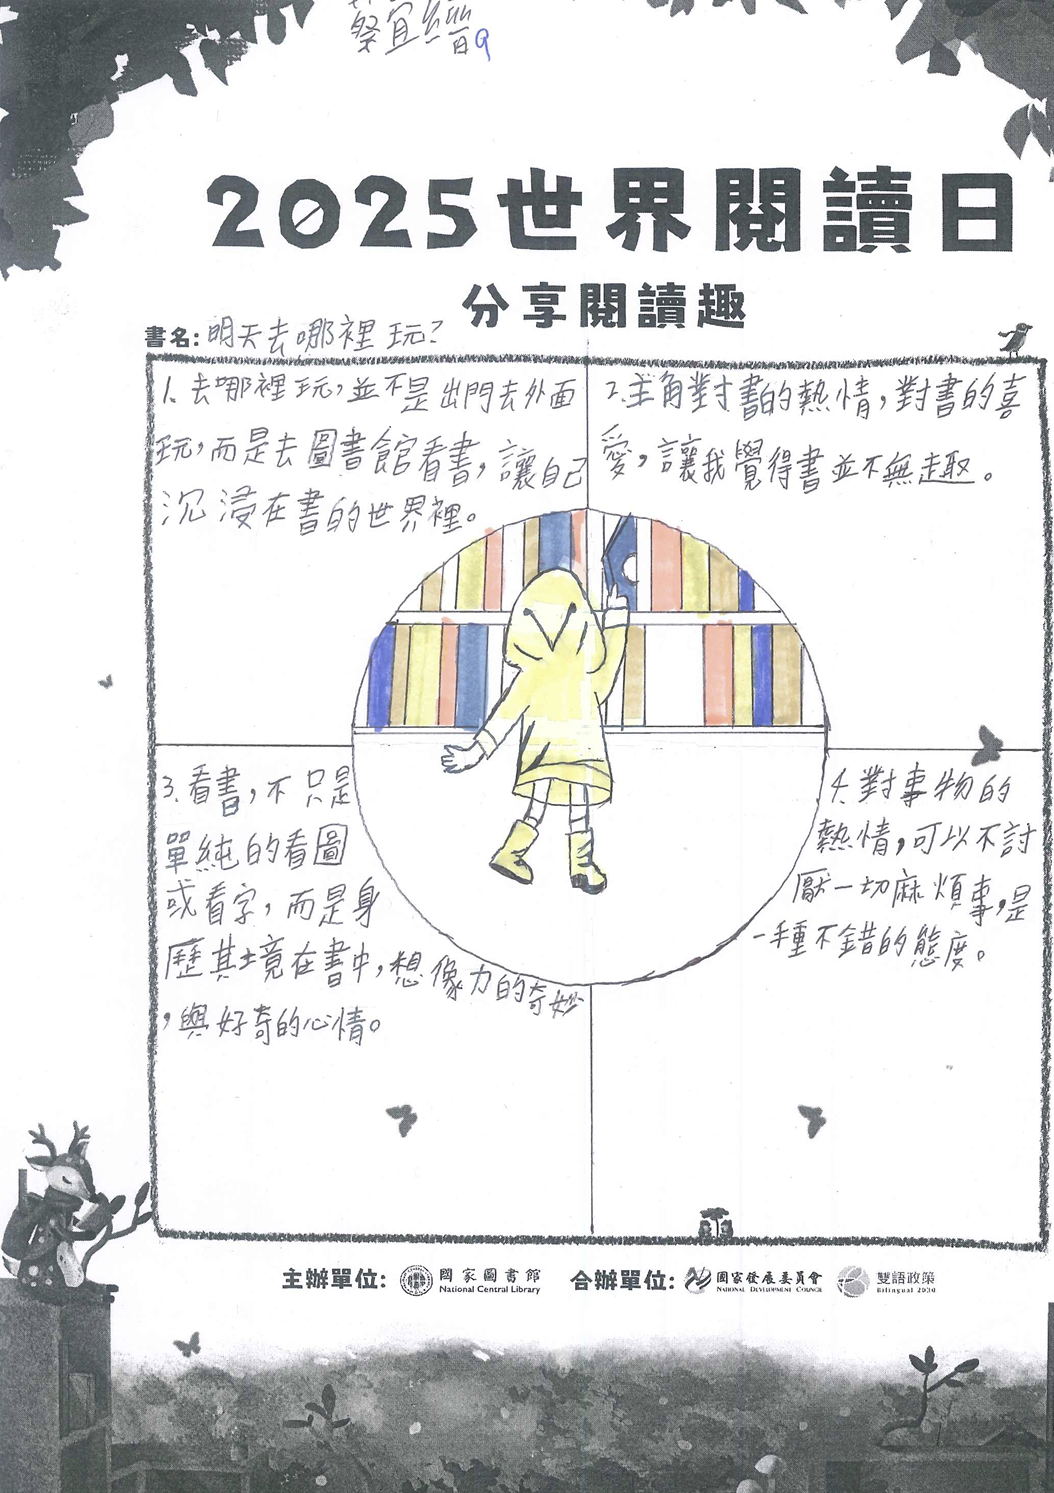 蔡宜縉9
2025世界閱讀日
分享閱讀趣
書名: 明天去哪裡玩?
1. 去哪裡玩,並不是出門去外面
玩,而是去圖書館看書,讓自己
沉浸在書的世界裡。
2.主角對書的熱情,對書的喜
愛,讓我覺得書並不無趣。
3.看書,不只是
單純的看圖
或看字,而是身
歷其境在書中,想像力的奇妙
,與好奇的心情。
4.對事物的
熱情,可以不討
厭一切麻煩事,是
一種不錯的態度。
主辦單位: 國家圖書館 合辦單位: 國家發展委員會 雙語政策
National Central Library NATIONAL DEVELOPMENT COUNCIL Bilingual 2030